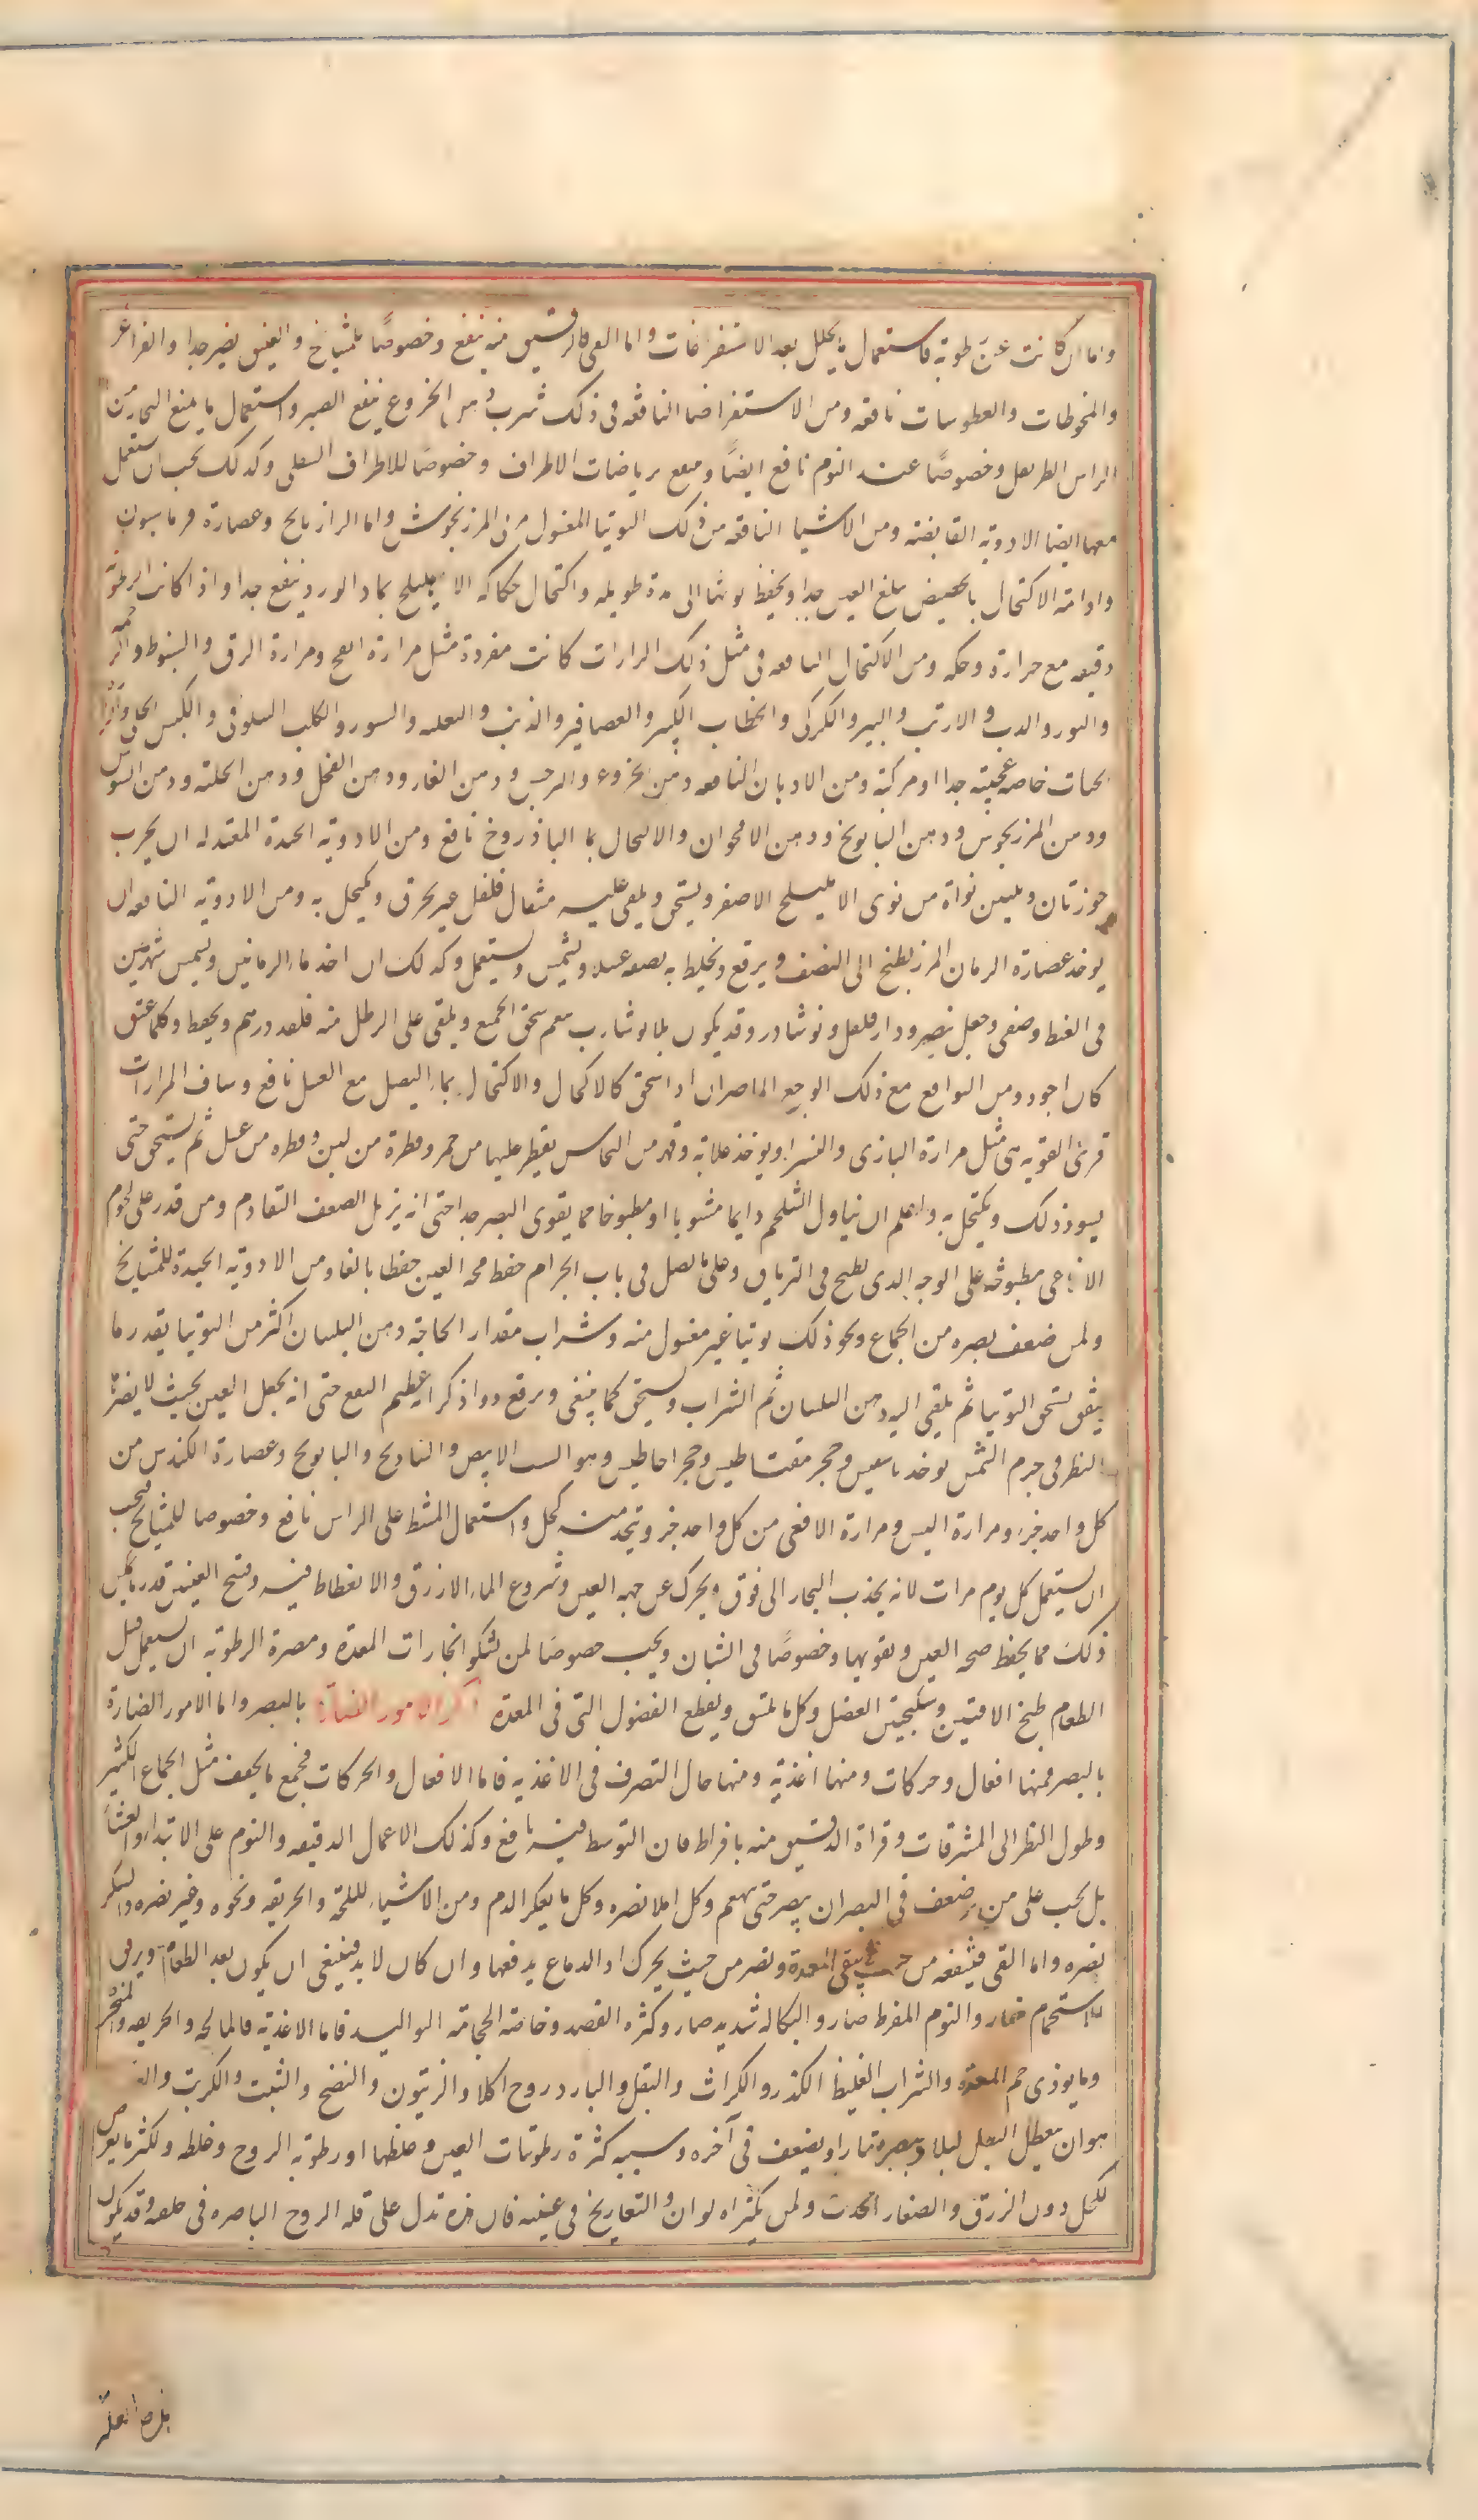 واما ان كانت عن رطوبة فاستعمال ما يحلل بعد الاستفراغات واما القى فالرقيق منه ينفع وخصوصًا للمشايخ والعنيف يضر جدا والغراغر
والمخوطات والعطوسات نافعه ومن الاستفراغات النافعه فى ذلك شرب دهن الخروع ينفع البصر واستعمال ما يمنع البخار من
الراس الطريفل وخصوصًا عند النوم نافع ايضًا وينفع رياضات الاطراف وخصوصًا للاطراف السفلى وكذلك يجب ان يستعمل
معها ايضا الادوية القابضة ومن الاشيا النافعه من ذلك التوتيا المغسول بماء المرزنجوش واما الرازيانج وعصارة فراسيون
وادامة الاكتحال بالحضض يبلغ العين جدا ويحفظ قوتها الى مدة طويله واكتحال حكاكه الاهليلج بماء الورد ينفع جدا واذا كانت الرطوبة
رقيقه مع حرارة وحكه ومن الاكتحال النافعه فى مثل ذلك المرارات كانت مفردة مثل مرارة القبج ومرارة الرق والشبوط والرخمة
والثور والدب والارنب والتيس والكركى والخطاف الكبير والعصافير والذئب والثعلب والسنور والكلب السلوقى والكبش الجبلى
خاصه عجيبة جدا او مركبة ومن الادهان النافعه دهن الخروع والنرجس ودهن الغار ودهن الفجل ودهن الحلبة ودهن السوسن
ودهن المرزنجوش ودهن البابونج ودهن الاقحوان والاكتحال بماء الباذروج نافع ومن الادوية الجيدة المعتدله ان يحرق
جوزتان وثلثين نواة من نوى الاهليلج الاصفر ويسحق ويلقى عليه مثقال فلفل غير محرق ويكتحل به ومن الادوية النافعه ان
يوخذ عصارة الرمان المز يطبخ الى النصف ويرفع ويخلط به نصفه عسلا ويشمس ويستعمل وكذلك ان اخذ ماء الرمانين وشمس شهرين
فى القيظ وصفى وجعل فيه صبر ودارفلفل ونوشادر وقد يكون بلا نوشادر ينعم سحق الجميع ويلقى على الرطل منه ثلثة درهم ويحفظ وكلما عتق
كان اجود ومن النوافع مع ذلك الوج الماميران اذا سحق كالاكحال والاكتحال بماء البصل مع العسل نافع وشياف المرارات
قوى القويه هى مثل مرارة البازى والنسر ويوخذ صلابة وفهر من النحاس يقطر عليهما من خمر وقطرة من لبن وقطره من عسل ثم يسحق حتى
يسود ذلك ويكتحل به واعلم ان تناول الشلجم دايما مشويا او مطبوخا مما يقوى البصر جدا حتى انه يزيل الضعف المتقادم ومن قدر على لحوم
الافاعى مطبوخة على الوجه الذى يطبخ فى الترياق وعلى ما فصل فى باب الجذام حفظ صحة العين حفظا بالغا ومن الادوية الجيدة للمشايخ
ولمن ضعف بصره من الجماع ونحو ذلك توتيا غير مغسول منه وشراب مقدار الحاجة دهن البلسان اكثر من التوتيا بقدر ما
يتفق يسحق التوتيا ثم يلقى اليه دهن البلسان ثم الشراب ويسحق كما ينبغى ويرفع دوا ذكر انه عظيم النفع حتى انه يجعل العين بحيث لا يضرها
النظر فى جرم الشمس يوخذ باسقيس وحجر مغناطيس وحجر اجاطيس وهو الشب الابيض والشادنج والبابونج وعصارة الكندس من
كل واحد جزء ومرارة النسر ومرارة الافعى من كل واحد جزء ويتخذ منه كحل واستعمال المشط على الراس نافع وخصوصا للمشايخ فيجب
ان يستعمل كل يوم مرات لانه يجذب البخار الى فوق ويحرك عن جهة العين وشروع الماء الازرق والانغطاط فيه وفتح العينين قدر ما يمكن
ذلك مما يحفظ صحه العين ويقويها وخصوصًا فى الشبان ويجب خصوصًا لمن يشكو بخارات المعدة ومضرة الرطوبه ان يستعمل قبل
الطعام طبخ الافسنتين وسكنجبين العنصل وكل ما يلين ويقطع الفضول التى فى المعدة ذكر الامور الضارة بالبصر واما الامور الضارة
بالبصر فمنها افعال وحركات ومنها اغذية ومنها حال التصرف فى الاغذيه فاما الافعال والحركات فجميع ما يجفف مثل الجماع الكثير
وطول النظر الى المشرقات وقراة الدقيق منه بافراط فان التوسط فيه نافع وكذلك الاعمال الدقيقه والنوم على الامتلاء والعشاء
بل يجب على من به ضعف فى البصر ان يصبر حتى ينهضم وكل املا يضره وكل ما يعكر الدم ومن الاشياء المالحة والحريفه ونحوه وغير يضره والسكر
يضره واما القى فينفعه من حيث ينقى المعدة ويضر من حيث يحرك مواد الدماغ يدفعها وان كان لا بد فينبغى ان يكون بعد الطعام وبرفق
والاستحمام ضار والنوم المفرط ضار والبكا الشديد ضار وكثرة الفصد وخاصة الحجامة المتواليه فاما الاغذية فالمالحه والحريفه والمبخرة
وما يوذى فم المعدة والشراب الغليظ الكدر والكراث والبقل والباذروج اكلا والزيتون والنضج والشبت والكرنب والعدس
هو ان يتعطل البصر ليلا ويبصر نهارا ويضعف فى آخره وسببه كثرة رطوبات العين وغلظها او رطوبة الروح وغلظه واكثر ما يعرض
للكحل دون الزرق والصغار الحدق ولمن يكثر الالوان والتعاريج فى عينه فان هذه تدل على قله الروح الباصره فى خلقه وقد يكون